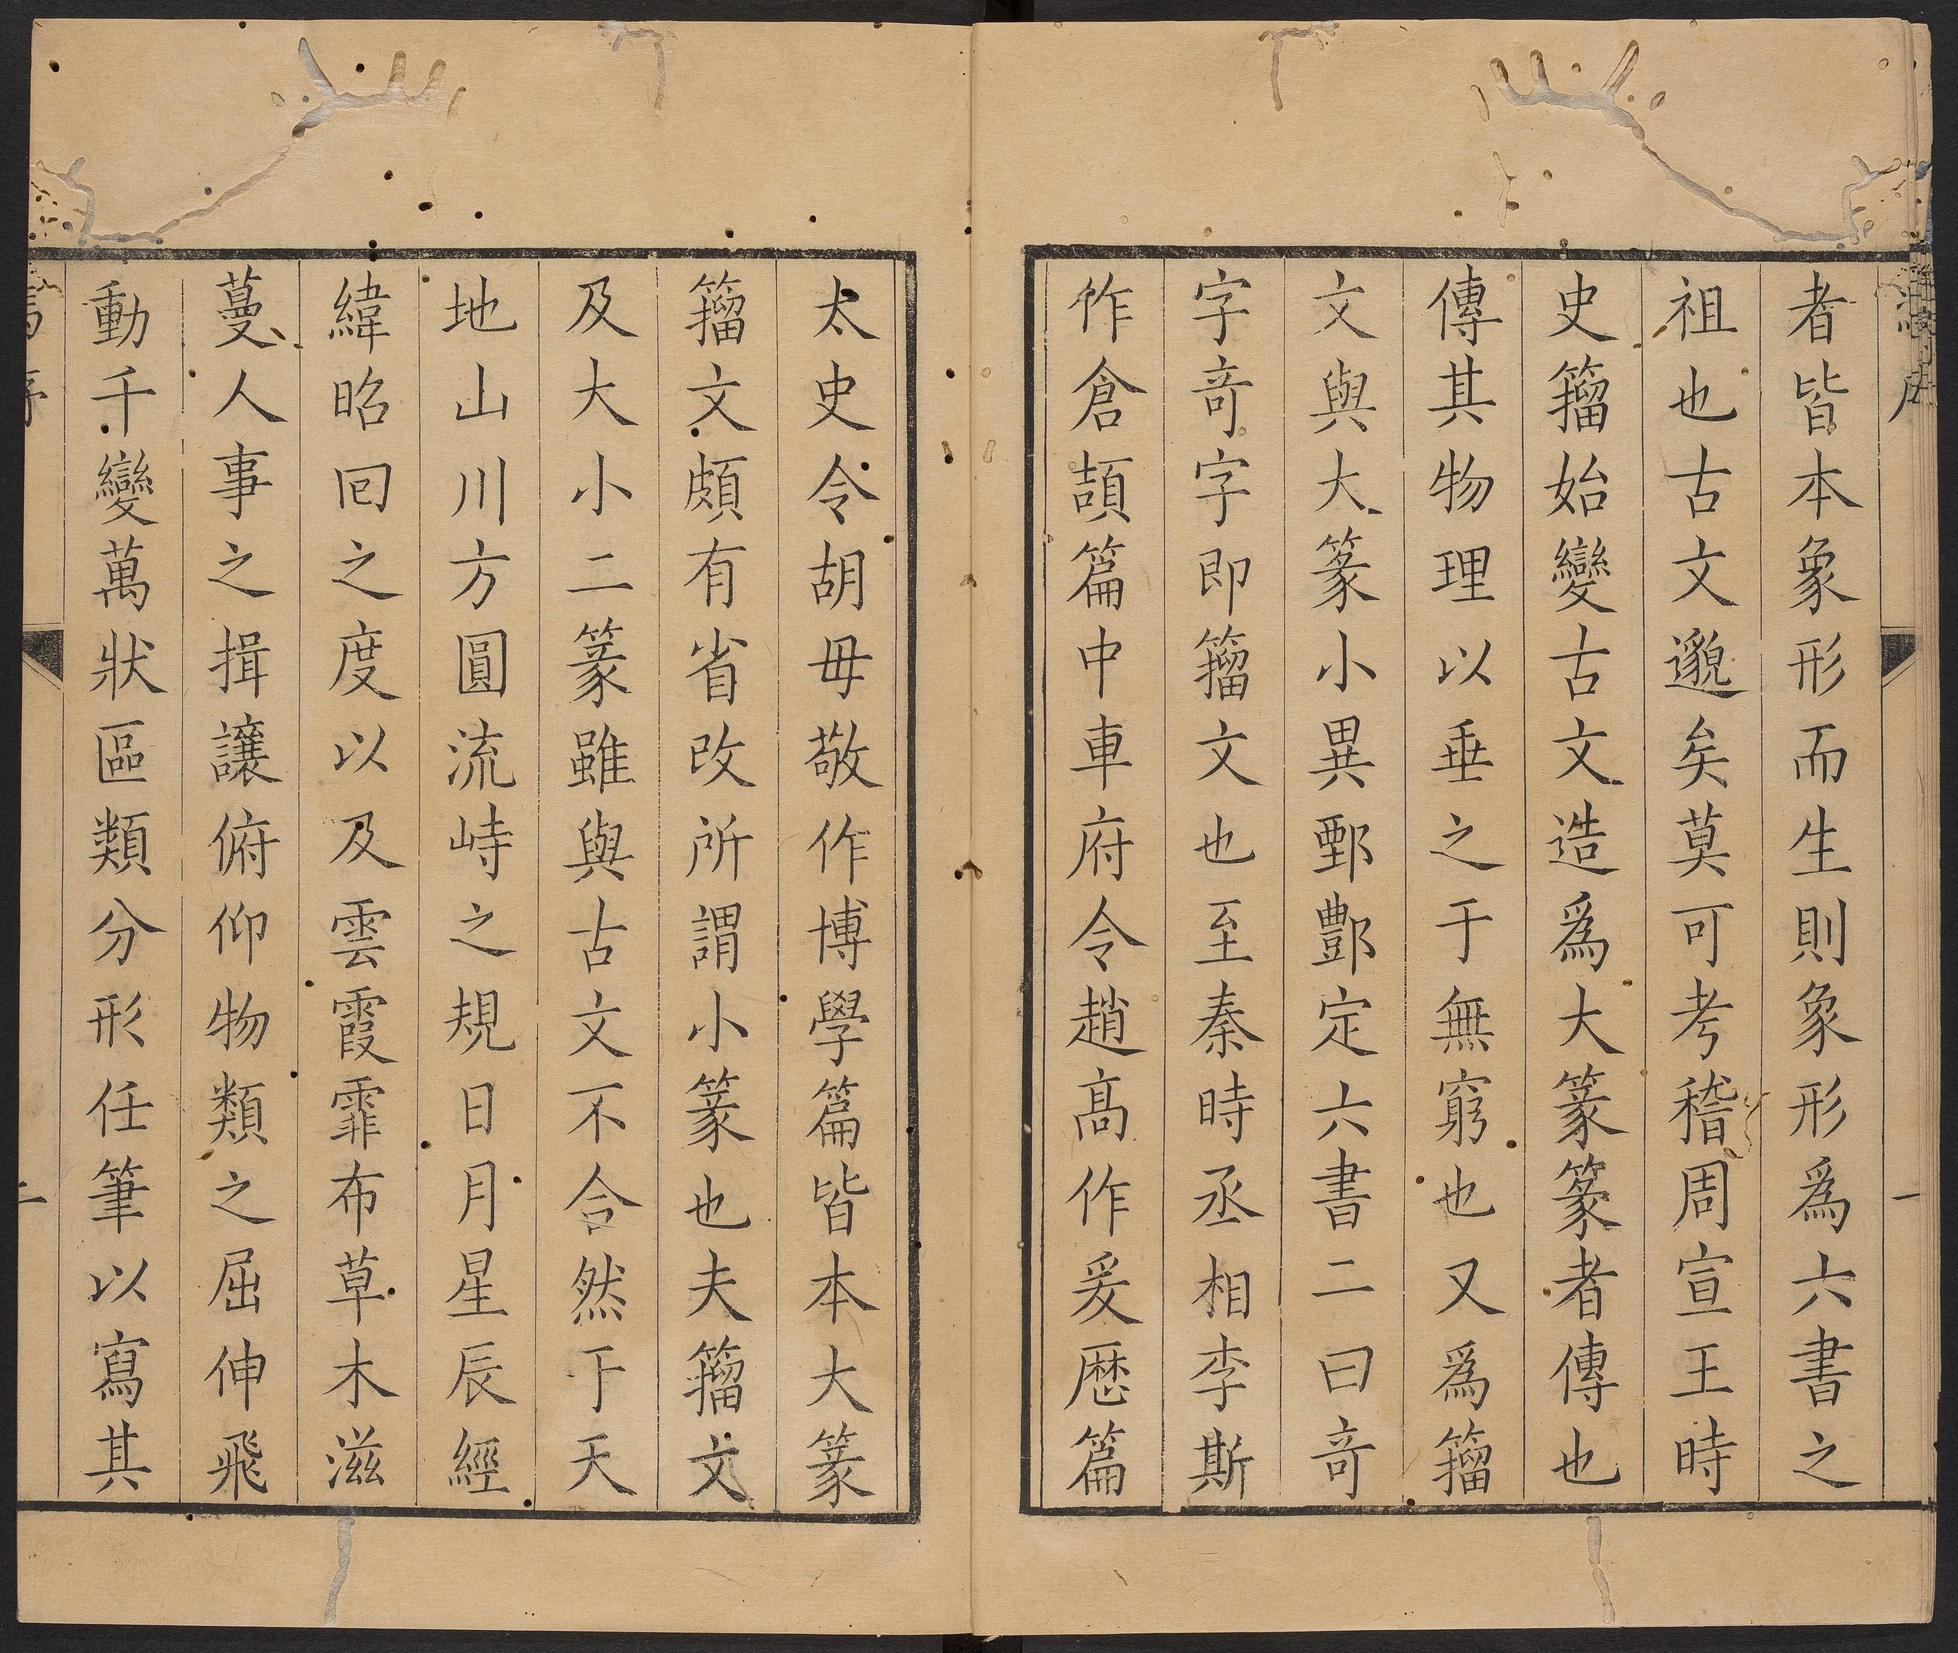 者皆本象形而生則象形爲六書之
祖也古文邈矣莫可考稽周宣王時
史籒始變古文造爲大篆篆者傳也
傳其物理以垂之于無窮也又爲籒
文與大篆小異鄄酆定六書二曰竒
字竒字即籒文也至秦時丞相李斯
作倉頡篇中車府令趙髙作爰歷篇
太史令胡毋敬作博學篇皆本大篆
籒文頗有省改所謂小篆也夫籒文
及大小二篆雖與古文不合然于天
地山川方圓流峙之規日月星辰經
緯昭囘之度以及雲霞霏布草木滋
蔓人事之揖讓俯仰物類之屈伸飛
動千變萬狀區類分形任筆以寫其